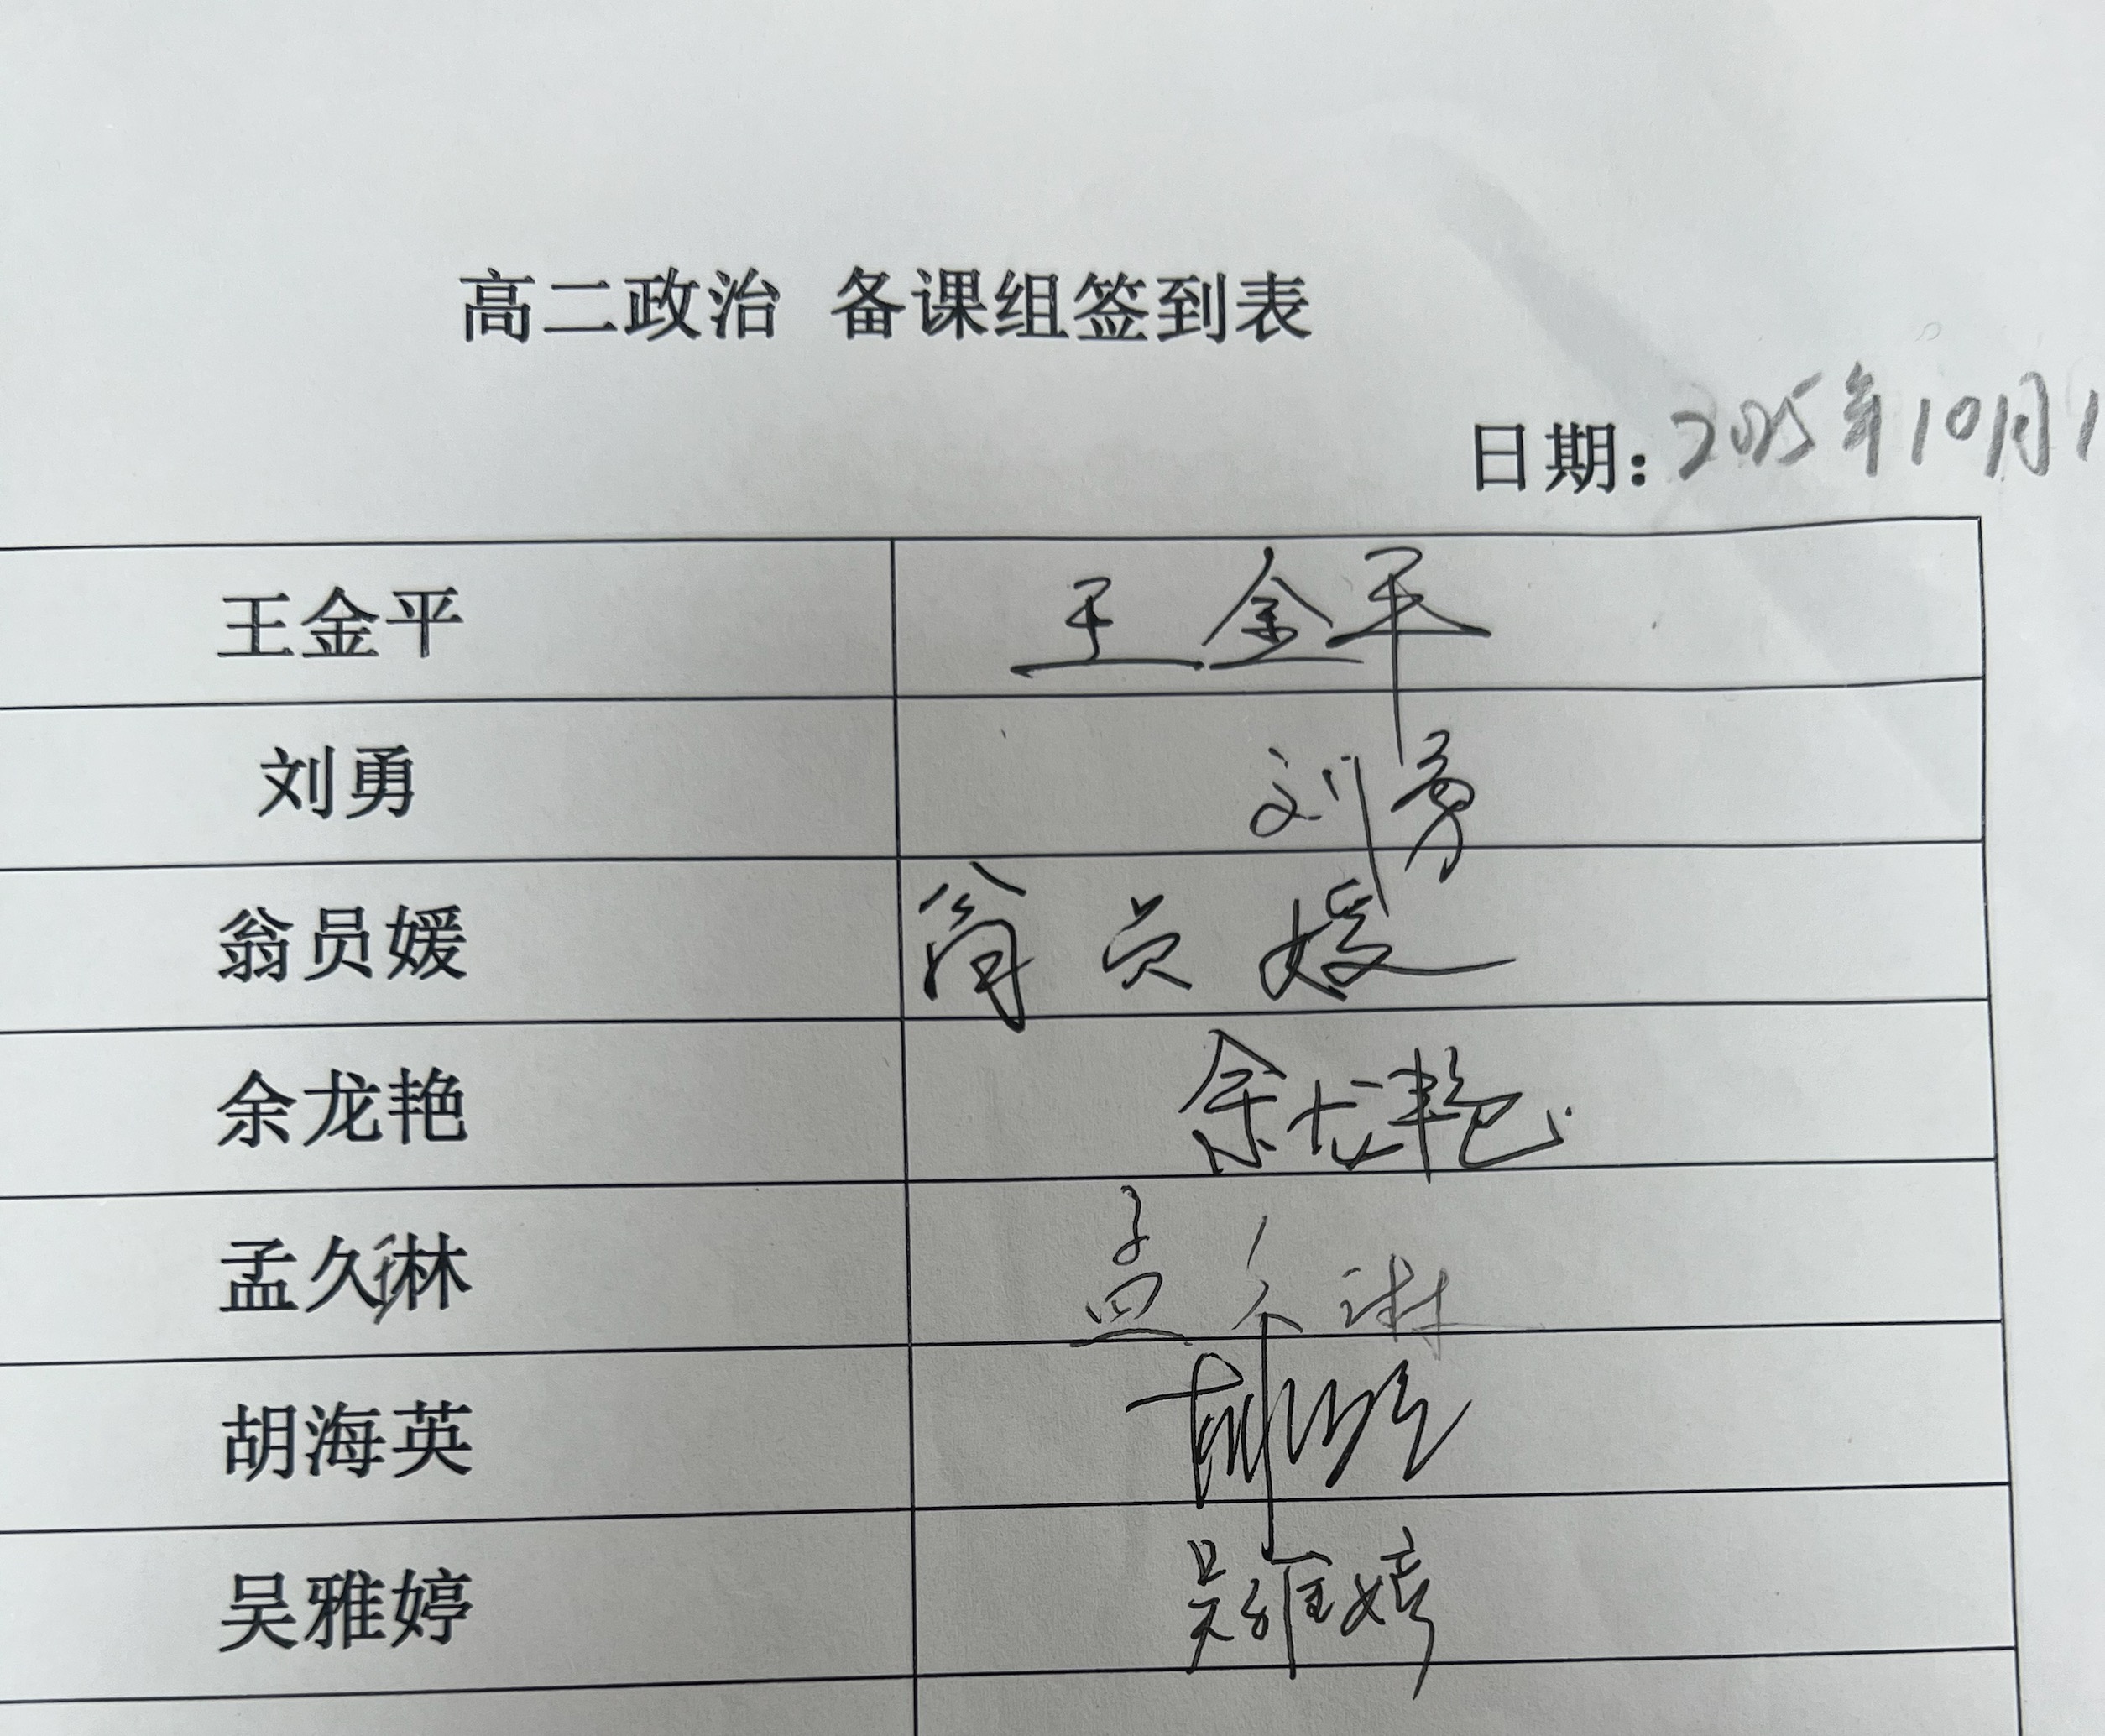 高二政治 备课组签到表
日期：2025年10月1
王金平 王金平
刘勇 刘勇
翁员媛 翁员媛
余龙艳 余龙艳
孟久林 孟久淋
胡海英 胡海英
吴雅婷 吴雅婷